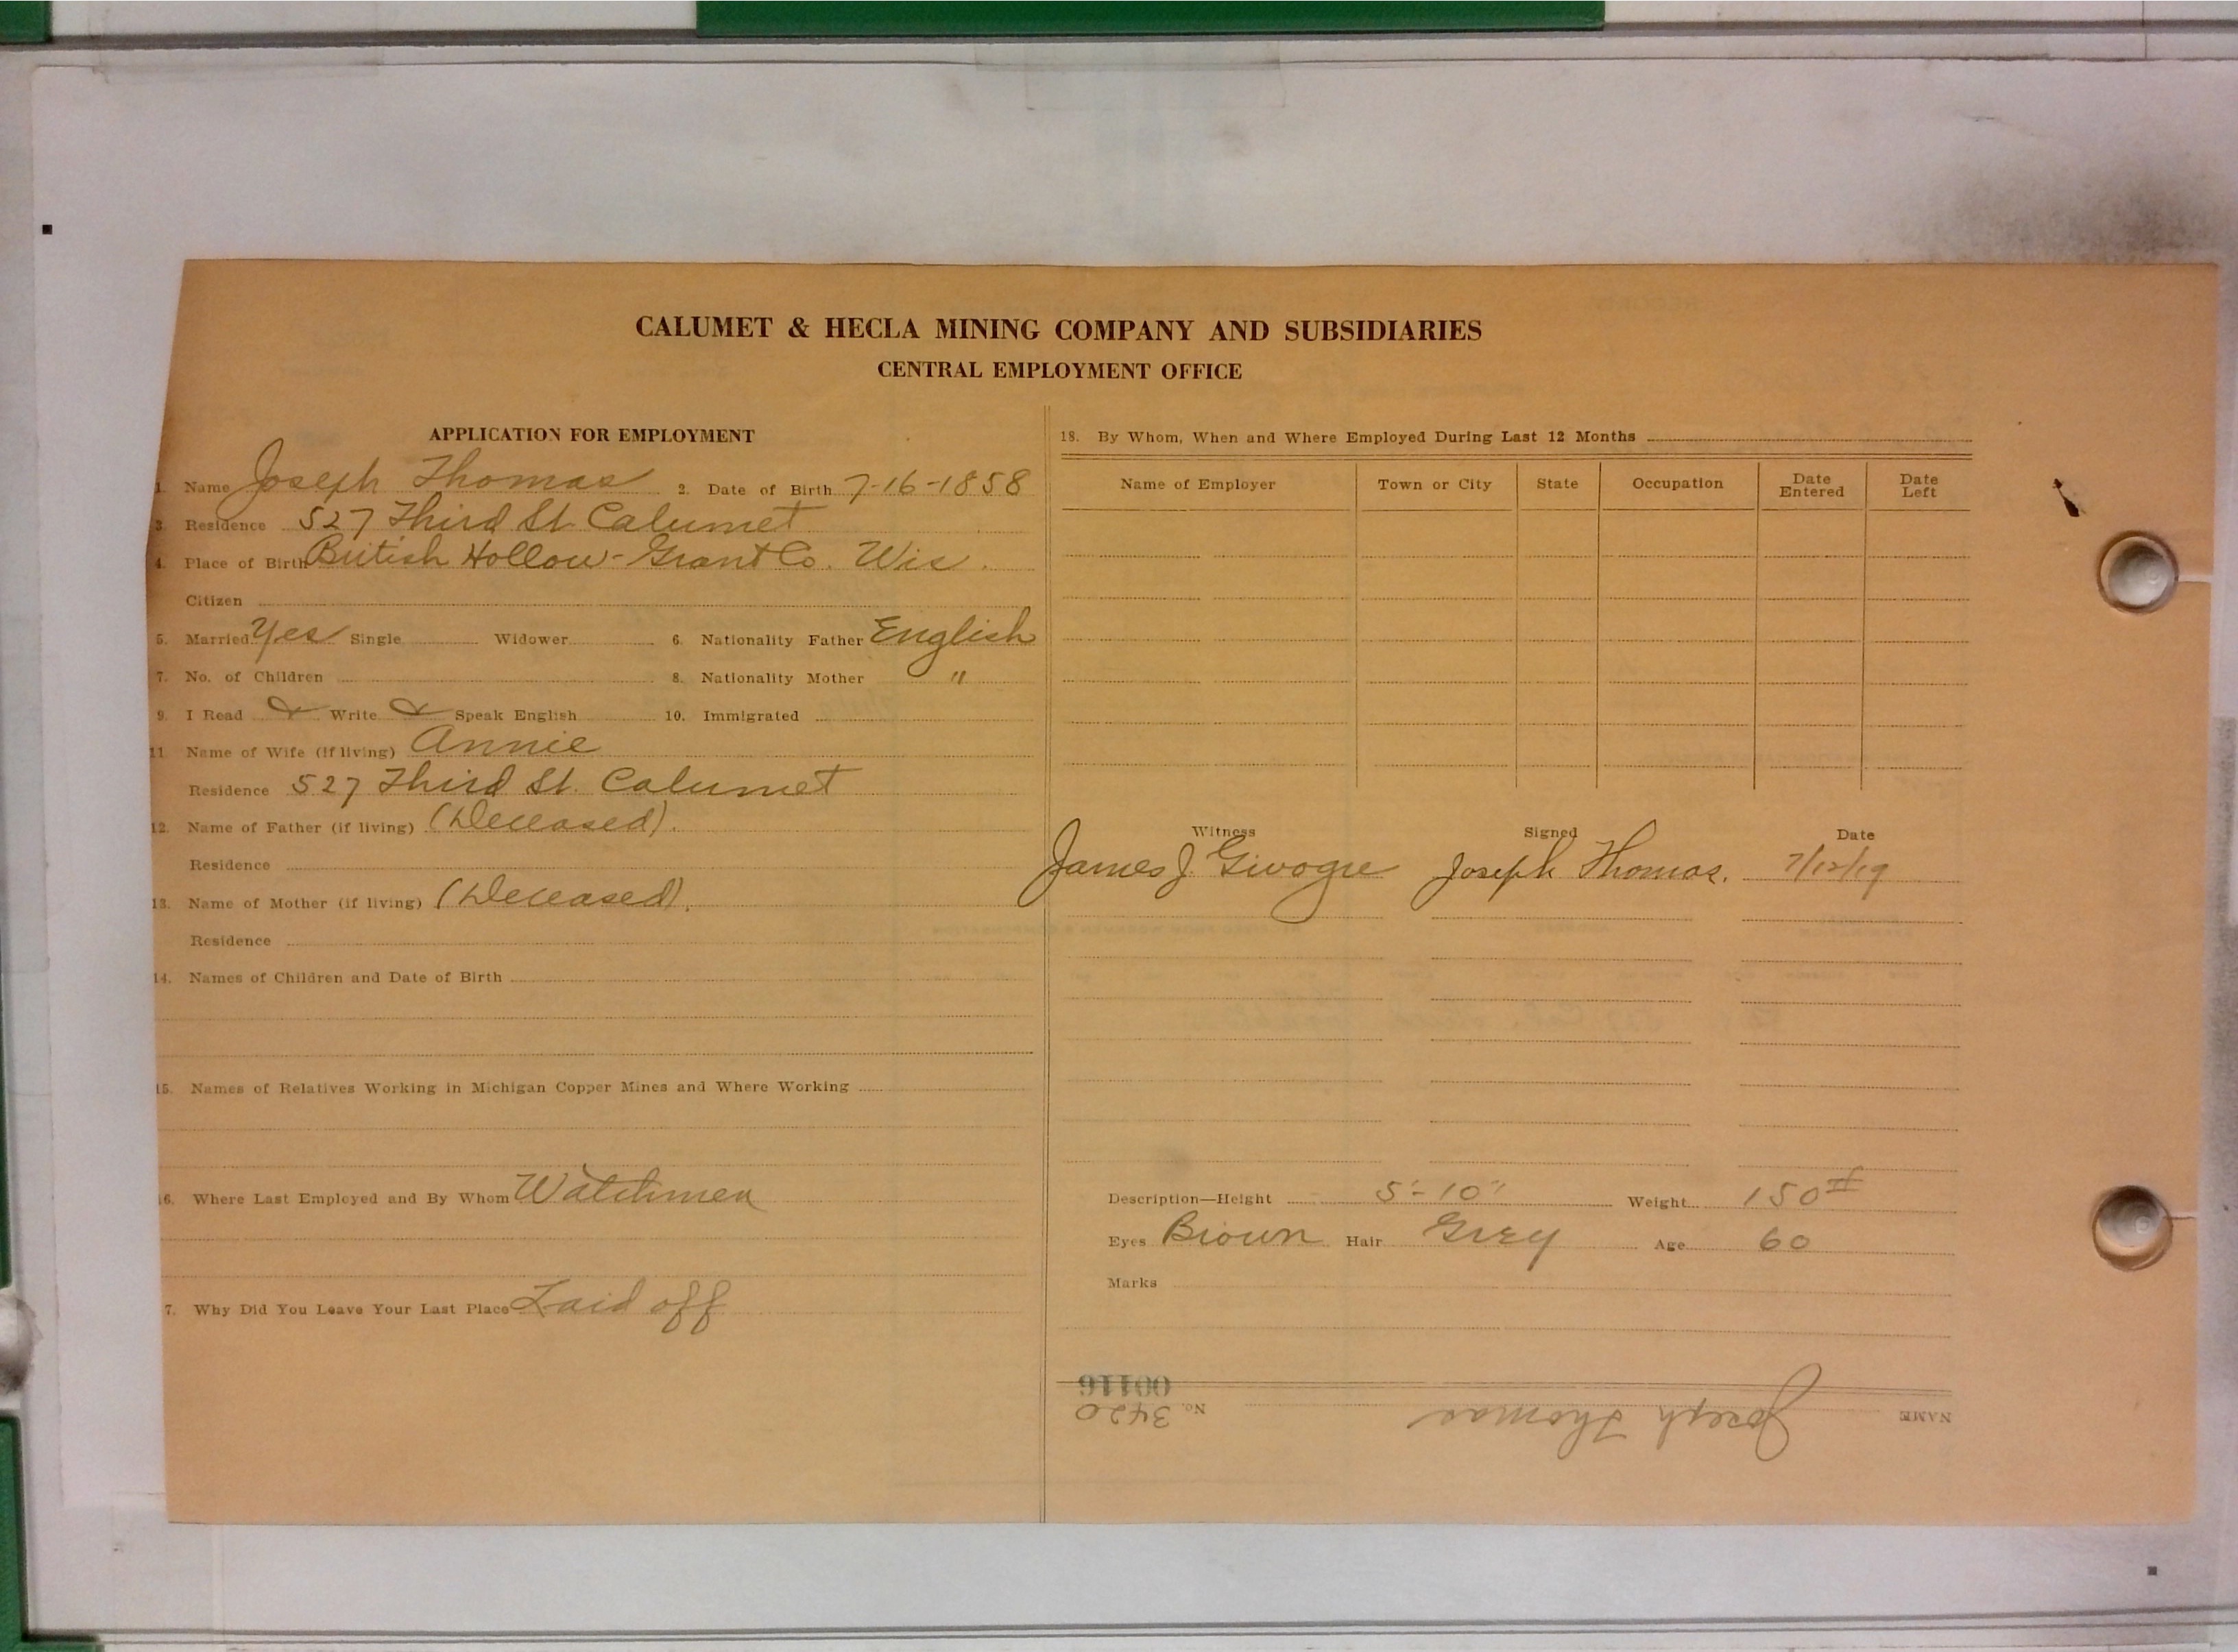 CALUMET & HECLA MINING COMPANY AND SUBSIDIARIES
CENTRAL EMPLOYMENT OFFICE
APPLICATION FOR EMPLOYMENT
1. Name Joseph Thomas 2. Date of Birth 7-16-1858
3. Residence 527 Third St. Calumet
4. Place of Birth British Hollow - Grant Co. Wis.
Citizen
5. Married Yes Single Widower 6. Nationality Father English
7. No. of Children 8. Nationality Mother "
9. I Read & Write & Speak English 10. Immigrated
11. Name of Wife (if living) Annie
Residence 527 Third St. Calumet
12. Name of Father (if living) (Deceased).
Residence
13. Name of Mother (if living) (Deceased).
Residence
14. Names of Children and Date of Birth
15. Names of Relatives Working in Michigan Copper Mines and Where Working
16. Where Last Employed and By Whom Watchmen
7. Why Did You Leave Your Last Place Laid off
18. By Whom, When and Where Employed During Last 12 Months
Name of Employer Town or City State Occupation Date Entered Date Left
Witness Signed Date
James J. Joseph Thomas. 7/12/19
Description—Height 5'-10" Weight 150#
Eyes Brown Hair Grey Age 60
Marks
NAME Joseph Thomas No. 3420
00116